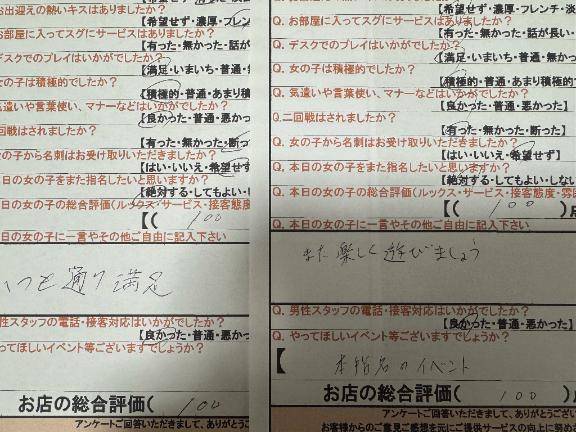 お出迎えの熱いキスはありましたか?
【希望せず・濃厚・フレン
お部屋に入ってスグにサービスはありましたか?
【有った・無かった・話が
デスクでのプレイはいかがでしたか?
【満足・いまいち・普通・
女の子は積極的でしたか?
【積極的・普通・あまり積
気遣いや言葉使い、マナーなどはいかがでしたか?
【良かった・普通・悪かっ
回戦はされましたか?
【有った・無かった・断っ
の子から名刺はお受け取りいただきましたか?
【はい・いいえ・希望せず
日の女の子をまた指名したいと思いますか?
【絶対する・してもよい・
日の女の子の総合評価(ルックス・サービス・接客態
【( 100
本日の女の子に一言やその他ご自由に記入下さい
いつも通り満足
性スタッフの電話・接客対応はいかがでしたか?
【良かった・普通・悪かっ
ってほしいイベント等ございますでしょうか?
お店の総合評価( 100
アンケートご回答いただきまして、ありがとうご
【希望せず・濃厚・フレンチ・淡
Q. お部屋に入ってスグにサービスはありましたか?
【有った・無かった・話が長い・
Q. デスクでのプレイはいかがでしたか?
【満足・いまいち・普通・無
Q. 女の子は積極的でしたか?
【積極的・普通・あまり積極
Q. 気遣いや言葉使い、マナーなどはいかがでしたか?
【良かった・普通・悪かった】
Q.二回戦はされましたか?
【有った・無かった・断った】
Q. 女の子から名刺はお受け取りいただきましたか?
【はい・いいえ・希望せず】
Q. 本日の女の子をまた指名したいと思いますか?
【絶対する・してもよい・しない
Q. 本日の女の子の総合評価(ルックス・サービス・接客態度・雰
【( 100 )
Q. 本日の女の子に一言やその他ご自由に記入下さい
また楽しく遊びましょう
Q. 男性スタッフの電話・接客対応はいかがでしたか?
【良かった・普通・悪かった】
Q. やってほしいイベント等ございますでしょうか?
【 本指名のイベント
お店の総合評価( 100 )
アンケートご回答いただきまして、ありがとうござい
お客様からのご意見ご感想を元にご提供サービスの向上に努め